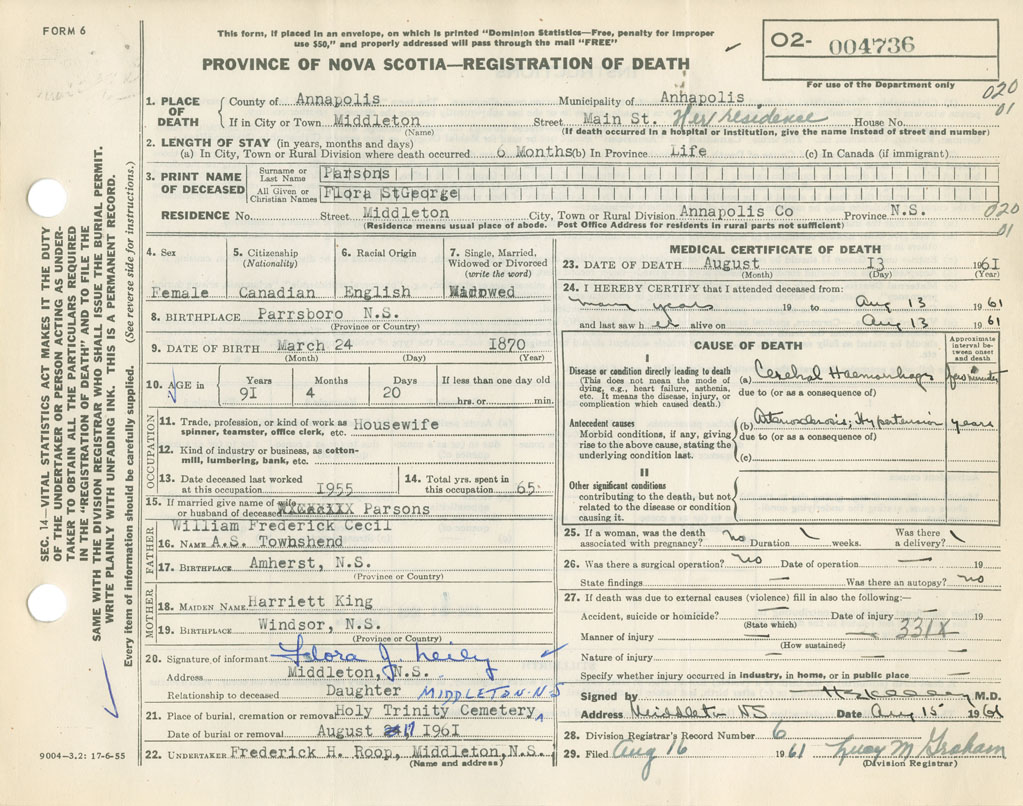 FORM 6
This form, if placed in an envelope, on which is printed "Dominion Statistics—Free, penalty for improper
use $50," and properly addressed will pass through the mail "FREE"
PROVINCE OF NOVA SCOTIA—REGISTRATION OF DEATH
O2- 004736
For use of the Department only
020
01
1. PLACE OF DEATH County of Annapolis Municipality of Annapolis
If in City or Town Middleton Street Main St. Her residence House No.
(Name) (If death occurred in a hospital or institution, give the name instead of street and number)
2. LENGTH OF STAY (in years, months and days)
(a) In City, Town or Rural Division where death occurred 6 Months (b) In Province Life (c) In Canada (if immigrant)
3. PRINT NAME OF DECEASED Surname or Last Name Parsons
All Given or Christian Names Flora StGeorge
RESIDENCE No. Street Middleton City, Town or Rural Division Annapolis Co Province N.S.
020
01
(Residence means usual place of abode. Post Office Address for residents in rural parts not sufficient)
4. Sex 5. Citizenship (Nationality) 6. Racial Origin 7. Single, Married, Widowed or Divorced (write the word)
Female Canadian English Widowed
8. BIRTHPLACE Parrsboro N.S.
(Province or Country)
9. DATE OF BIRTH March 24 I870
(Month) (Day) (Year)
10. AGE in Years Months Days If less than one day old
9I 4 20 hrs. or min.
OCCUPATION
11. Trade, profession, or kind of work as spinner, teamster, office clerk, etc. Housewife
12. Kind of industry or business, as cotton-mill, lumbering, bank, etc.
13. Date deceased last worked at this occupation I955 14. Total yrs. spent in this occupation 65
15. If married give name of wife or husband of deceased Parsons
FATHER
William Frederick Cecil
16. NAME A.S. Townshend
17. BIRTHPLACE Amherst, N.S.
(Province or Country)
MOTHER
18. MAIDEN NAME Harriett King
19. BIRTHPLACE Windsor, N.S.
(Province or Country)
20. Signature of informant Flora J. Neily
Address Middleton, N.S.
Relationship to deceased Daughter MIDDLETON-N-S
21. Place of burial, cremation or removal Holy Trinity Cemetery
Date of burial or removal August 17 I96I
22. UNDERTAKER Frederick H. Roop, Middleton, N.S.
(Name and address)
MEDICAL CERTIFICATE OF DEATH
23. DATE OF DEATH August I3 196I
(Month) (Day) (Year)
24. I HEREBY CERTIFY that I attended deceased from:
many years 19 to Aug 13 1961
and last saw her alive on Aug 13 1961
CAUSE OF DEATH
Approximate interval between onset and death
I
Disease or condition directly leading to death
(This does not mean the mode of dying, e.g., heart failure, asthenia, etc. It means the disease, injury, or complication which caused death.)
(a) Cerebral Haemorrhage few minutes
due to (or as a consequence of)
Antecedent causes
Morbid conditions, if any, giving rise to the above cause, stating the underlying condition last.
(b) Arteriosclerosis; Hypertension years
due to (or as a consequence of)
(c)
II
Other significant conditions
contributing to the death, but not related to the disease or condition causing it.
25. If a woman, was the death associated with pregnancy? no Duration weeks. Was there a delivery?
26. Was there a surgical operation? no Date of operation —
State findings — Was there an autopsy? no
27. If death was due to external causes (violence) fill in also the following:—
Accident, suicide or homicide? — Date of injury — 19
(State which)
Manner of injury — 331X
(How sustained)
Nature of injury —
Specify whether injury occurred in industry, in home, or in public place —
Signed by M.D.
Address Middleton NS Date Aug 15 1961
28. Division Registrar's Record Number 6
29. Filed Aug 16 1961 Lucy M. Graham
(Division Registrar)
SEC. 14—VITAL STATISTICS ACT MAKES IT THE DUTY
OF THE UNDERTAKER OR PERSON ACTING AS UNDER-
TAKER TO OBTAIN ALL THE PARTICULARS REQUIRED
IN THE "REGISTRATION OF DEATH" AND TO FILE THE
SAME WITH THE DIVISION REGISTRAR WHO SHALL ISSUE THE BURIAL PERMIT.
WRITE PLAINLY WITH UNFADING INK. THIS IS A PERMANENT RECORD.
Every item of information should be carefully supplied. (See reverse side for instructions.)
9004—3.2: 17-6-55